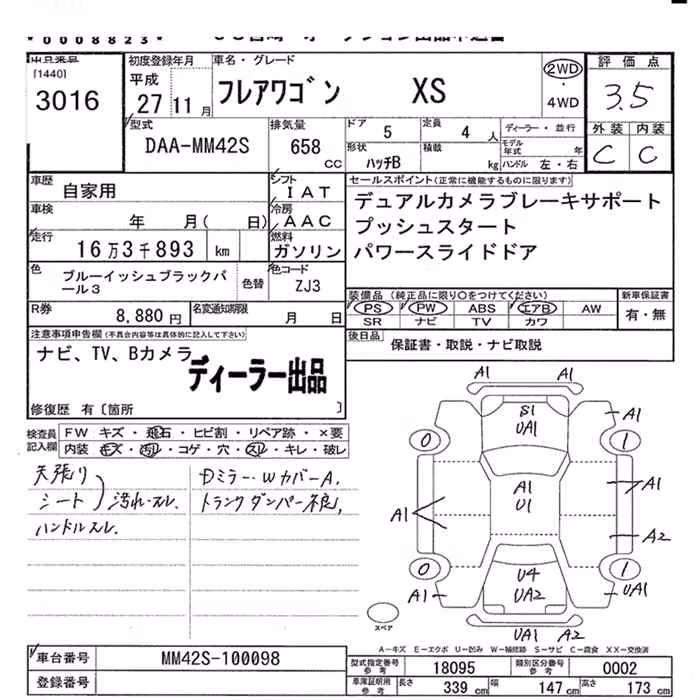 0008823
中古乗用
[1440]
3016
初度登録年月
平成
27 11 月
車名・グレード
フレアワゴン XS
2WD
・
4WD
評価点
3.5
外装 内装
C C
型式
DAA-MM42S
排気量
658
CC
ドア 5
定員 4 人
ディーラー・並行
形状 ハッチB
積載 kg
モデル年式 年
ハンドル 左・右
車歴 自家用
シフト IAT
車検 年 月( 日)
冷房 AAC
走行 16万3千893 km
燃料 ガソリン
色 ブルーイッシュブラックパール3
色替
色コード ZJ3
R券 8,880 円
名変通知期限 月 日
セールスポイント(正常に機能するものに限ります)
デュアルカメラブレーキサポート
プッシュスタート
パワースライドドア
装備品 (純正品に限り○をつけてください)
PS PW ABS エアB AW
SR ナビ TV カワ
新車保証書
有・無
後日品 保証書・取説・ナビ取説
注意事項申告欄(不具合内容等は具体的に記入して下さい)
ナビ、TV、Bカメラ
ディーラー出品
修復歴 有〔箇所 〕
検査員記入欄
FW キズ・飛石・ヒビ割・リペア跡・×要
内装 キズ・汚れ・コゲ・穴・スレ・キレ・破レ
天張り
シート 汚れ・スレ
ハンドルスレ.
Dミラー・WカバーA.
トランクダンパー不良,
A1 A1
S1
UA1
A1
0 1
A1
U1
A1
A1
A2
0 1
U4
UA2
A1
UA1
UA1 A2
スペア
A-キズ E-エクボ U-凹み W-補修跡 S-サビ C-腐食 XX-交換済
車台番号 MM42S-100098
登録番号
型式指定番号 参考 18095
類別区分番号 参考 0002
車庫証明用 参考 長さ 339 cm 幅 147 cm 高さ 173 cm